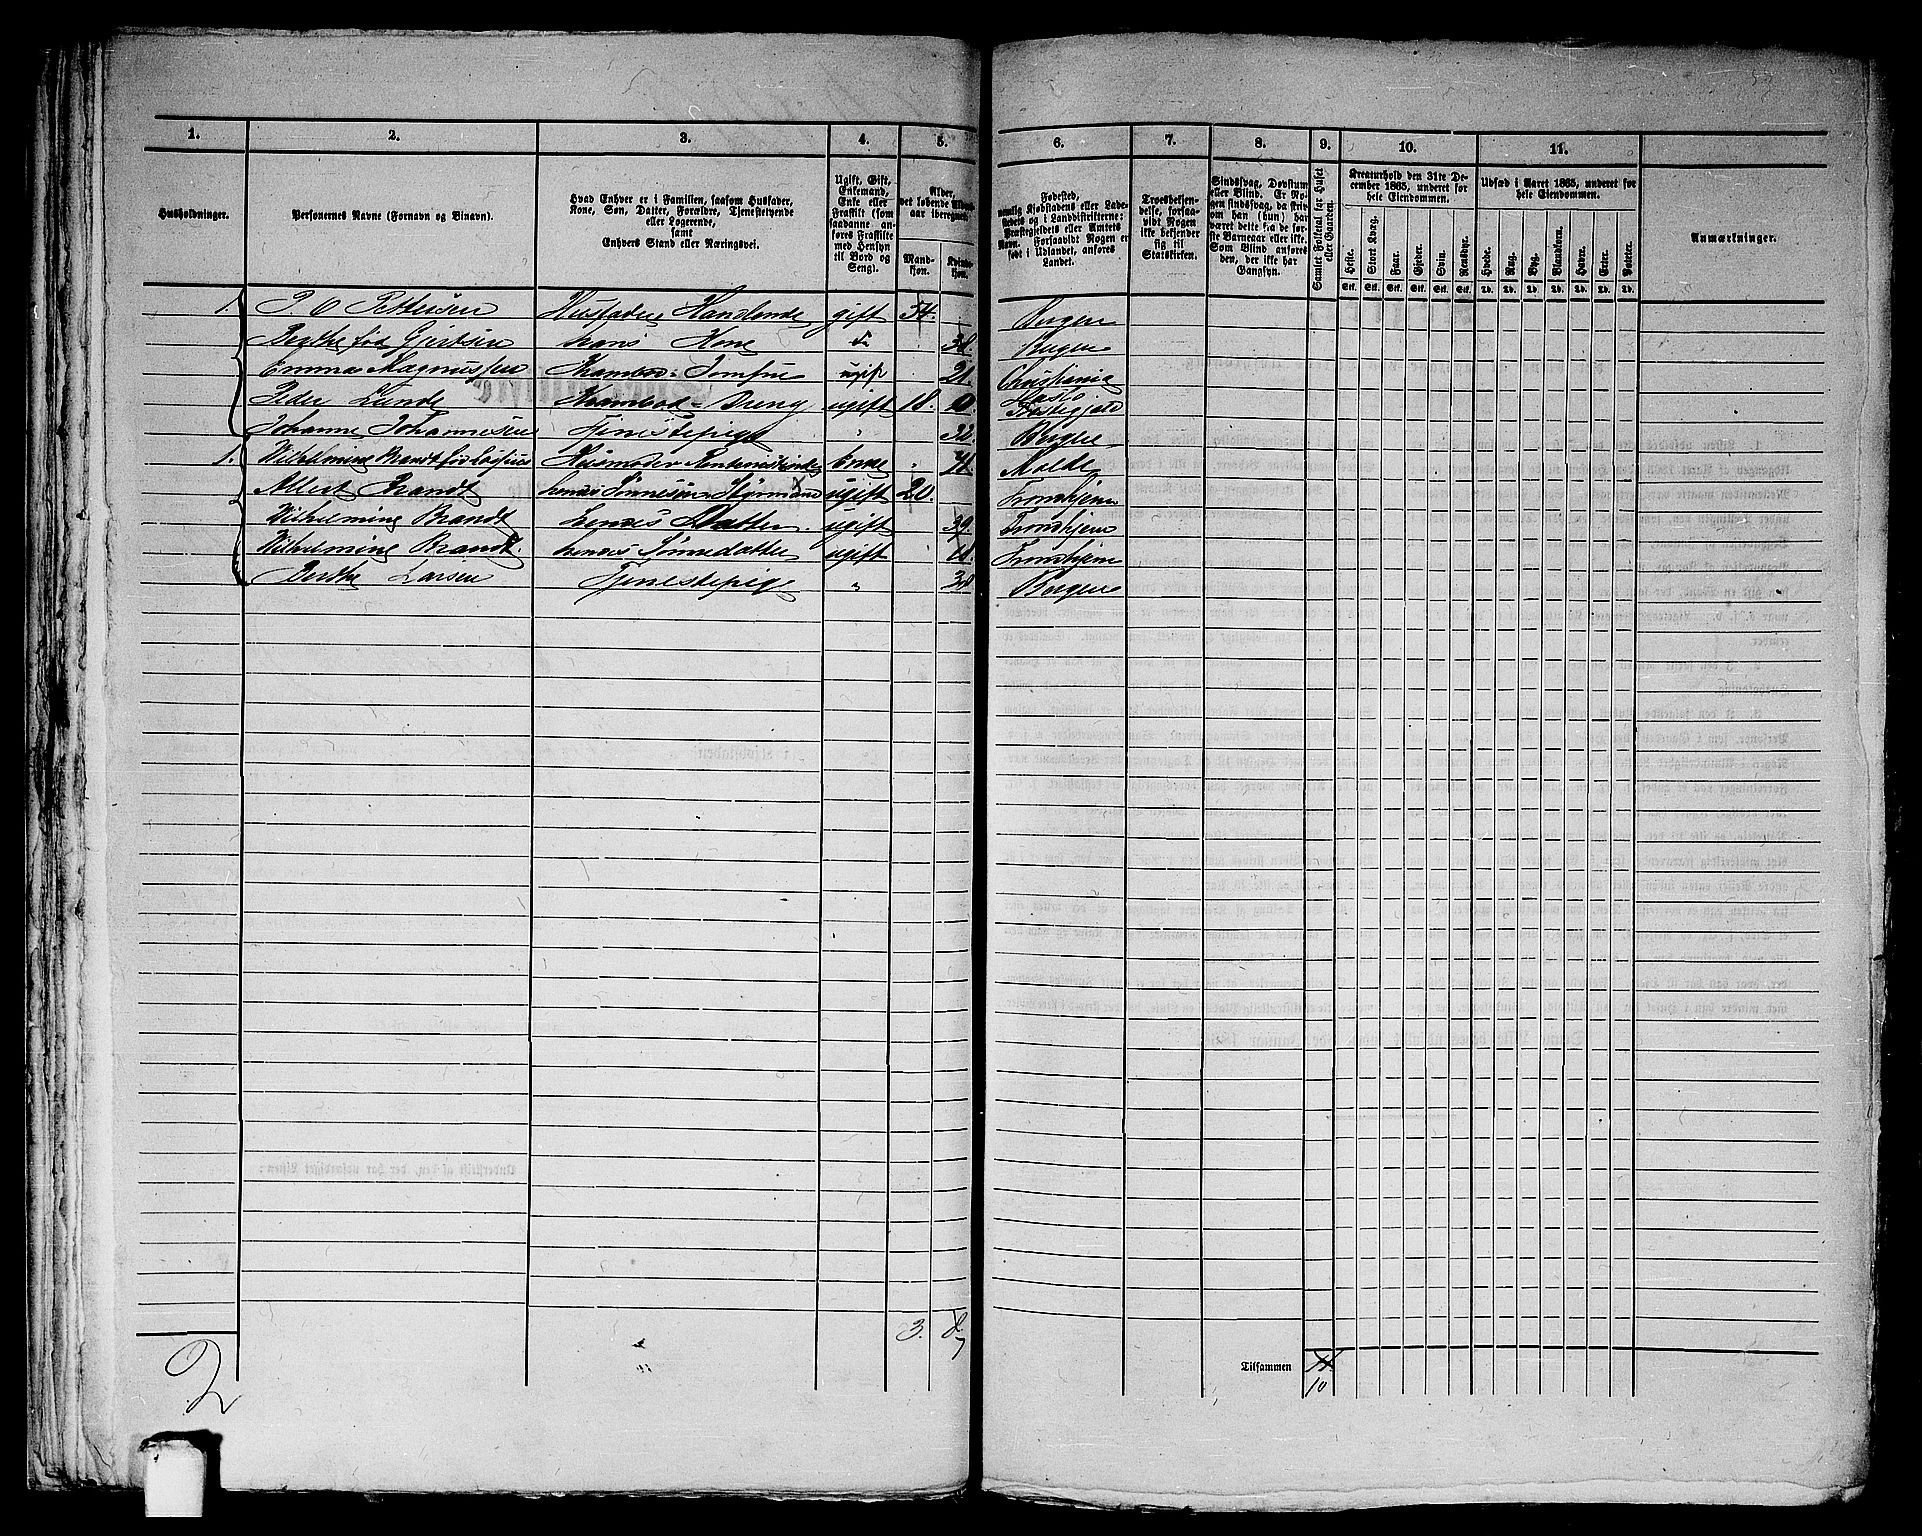 1. 2. 3. 4. 5. 6. 7. 8. 9. 10. 11.
Husholdninger.
Personernes Navne (Fornavn og Binavn).
Hvad Enhver er i Familien, saasom Husfader,
Kone, Søn, Datter, Forældre, Tjenestetyende
eller Logerende,
samt
Enhvers Stand eller Næringsvei.
Ugift, Gift,
Enkemand,
Enke eller
Fraskilt (som
saadanne an-
føres Fraskilte
med Hensyn
til Bord og
Seng).
Alder,
det løbende Alders-
aar iberegnet.
Mand-
kjøn.
Kvinde-
kjøn.
Fødested,
nemlig Kjøbstadens eller Lade-
stedets og i Landdistrikterne:
Præstegjeldets eller Amtets
Navn. Forsaavidt Nogen er
født i Udlandet, anføres
Landet.
Troesbekjen-
delse, forsaa-
vidt Nogen
ikke bekjender
sig til
Statskirken.
Sindssvag, Døvstum
eller Blind. Er No-
gen sindssvag, da skrives
om han (hun) har
været dette fra de før-
ste Barneaar eller ikke.
Som Blind anføres
den, der ikke har
Gangsyn.
Samlet Folketal for Huset
eller Gaarden.
Kreaturhold den 31te De-
cember 1865, underet for
hele Eiendommen.
Heste. Stort Kvæg. Faar. Gjeder. Sviin. Rensdyr.
Stk. Stk. Stk. Stk. Stk. Stk.
Udsæd i Aaret 1865, underet for
hele Eiendommen.
Hvede. Rug. Byg. Blandkorn. Havre. Erter. Poteter.
Td. Td. Td. Td. Td. Td. Td.
Anmærkninger.
1. P. O Pettersen Husfader Handlende gift 54. Bergen
Berthe fød Gjertsen hans Kone 38. Bergen
Emma Magnussen Krambod-Jomfru ugift 21. Christiania
Peder Lunde Krambod-Dreng ugift 18. Præstegjeld
Johanne Johannesen Tjenestepige " 32. Bergen
1. Wilhelmine Brandt fød Husmoder Enke 71 Molde
Albert Brandt hendes Sønnesøn Styrmand ugift 20. Trondhjem
Wilhelmine Brandt hendes Datter ugift 39. Trondhjem
Wilhelmine Brandt. hendes Sønnedatter ugift 18. Trondhjem
Berthe Larsen Tjenestepige " 38 Bergen
3. 8. 7
Tilsammen 11
10
2